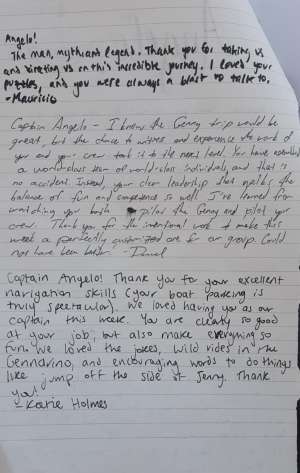 Angelo!
The man, myth and legend. Thank you for taking us
and directing us on this incredible journey. I loved your
puzzles, and you were always a blast to talk to.
-Mauricio
Captain Angelo - I knew the Genny trip would be
great, but the chance to witness and experience the work of
you and your crew took it to the next level. You have assembled
a world-class team of world-class individuals, and that is
no accident. Instead, your clear leadership that the
balance of fun and competence so well. I've learned from
watching you both pilot the Genny and pilot your
crew. Thank you for the intentional work to make this
week a perfectly customized one for our group. Could
not have been better. -
Captain Angelo! Thank you for your excellent
navigation skills (your boat parking is
truly spectacular). We loved having you as our
captain this week. You are clearly so good
at your job, but also make everything so
fun. We loved the jokes, wild rides in the
and encouraging words to do things
like jump off the side of Jenny. Thank
you!
- Katie Holmes